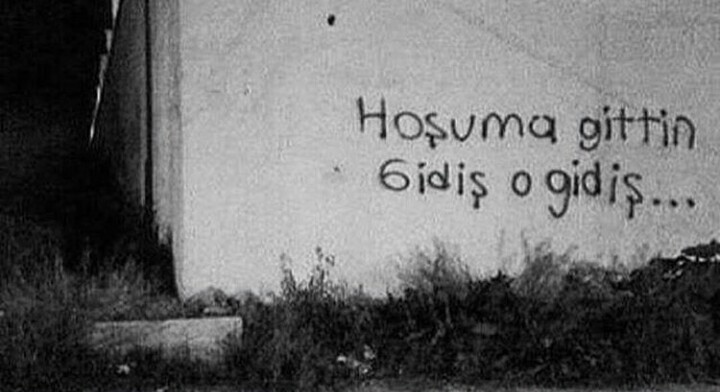 Hoşuma gittin
Gidiş o gidiş...